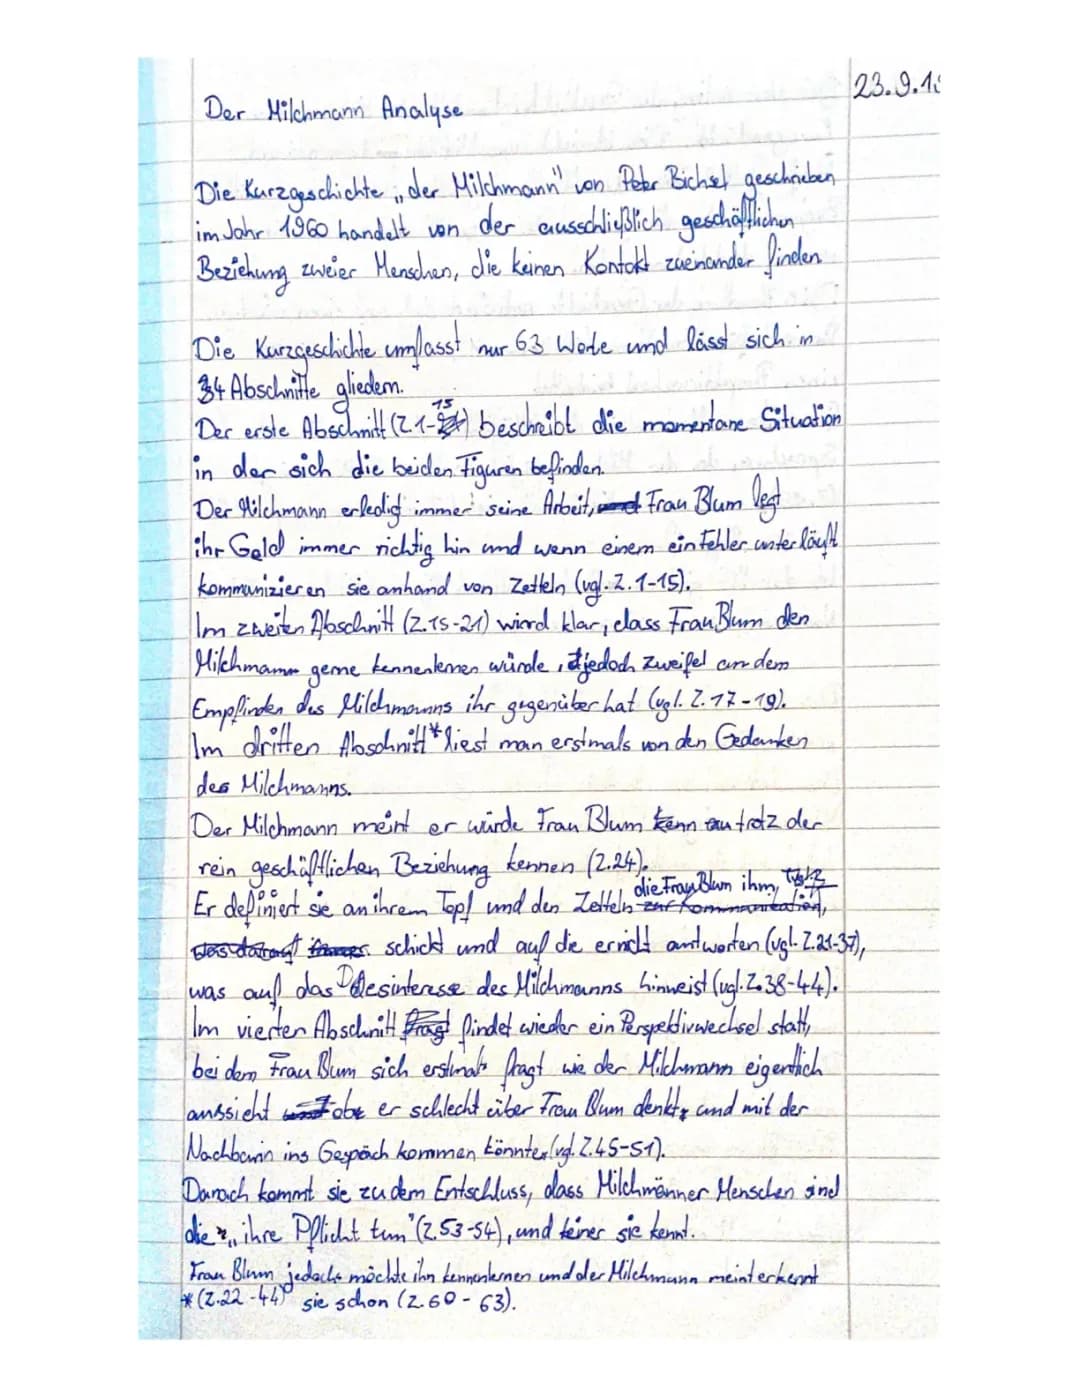 23.9.1
Der Milchmann Analyse
Die Kurzgeschichte „der Milchmann" von Peter Bichsel geschrieben
im Jahr 1960 handelt von der ausschließlich geschäftlichen
Beziehung zweier Menschen, die keinen Kontakt zueinander finden
Die Kurzgeschichte umfasst nur 63 Worte und lässt sich in
4 Abschnitte gliedern.
Der erste Abschnitt (Z.1-15) beschreibt die momentane Situation
in der sich die beiden Figuren befinden.
Der Milchmann erledigt immer seine Arbeit, Frau Blum legt
ihr Geld immer richtig hin und wenn einem ein Fehler unterläuft
kommunizieren sie anhand von Zetteln (vgl. Z.1-15).
Im zweiten Abschnitt (Z.15-21) wird klar, dass Frau Blum den
Milchmann gerne kennenlernen würde, jedoch Zweifel an dem
Empfinden des Milchmanns ihr gegenüber hat (vgl. Z.17-19).
Im dritten Abschnitt* liest man erstmals von den Gedanken
des Milchmanns.
Der Milchmann meint er würde Frau Blum trotz der
rein geschäftlichen Beziehung kennen (Z.24).
Er definiert sie an ihrem Topf und den Zetteln die Frau Blum ihm,
schickt und auf die er nicht antworten (vgl. Z.21-37),
was auf das Desinteresse des Milchmanns hinweist (vgl. Z.38-44).
Im vierten Abschnitt findet wieder ein Perspektivwechsel statt,
bei dem Frau Blum sich erstmals fragt wie der Milchmann eigentlich
aussieht ob er schlecht über Frau Blum denkt und mit der
Nachbarin ins Gespäch kommen könnte (vgl. Z.45-51).
Danach kommt sie zu dem Entschluss, dass Milchmänner Menschen sind
die „ihre Pflicht tun" (Z.53-54), und keiner sie kennt.
Frau Blum jedoch möchte ihn kennenlernen und der Milchmann meint er kennt
*(Z.22-44) sie schon (Z.60-63).